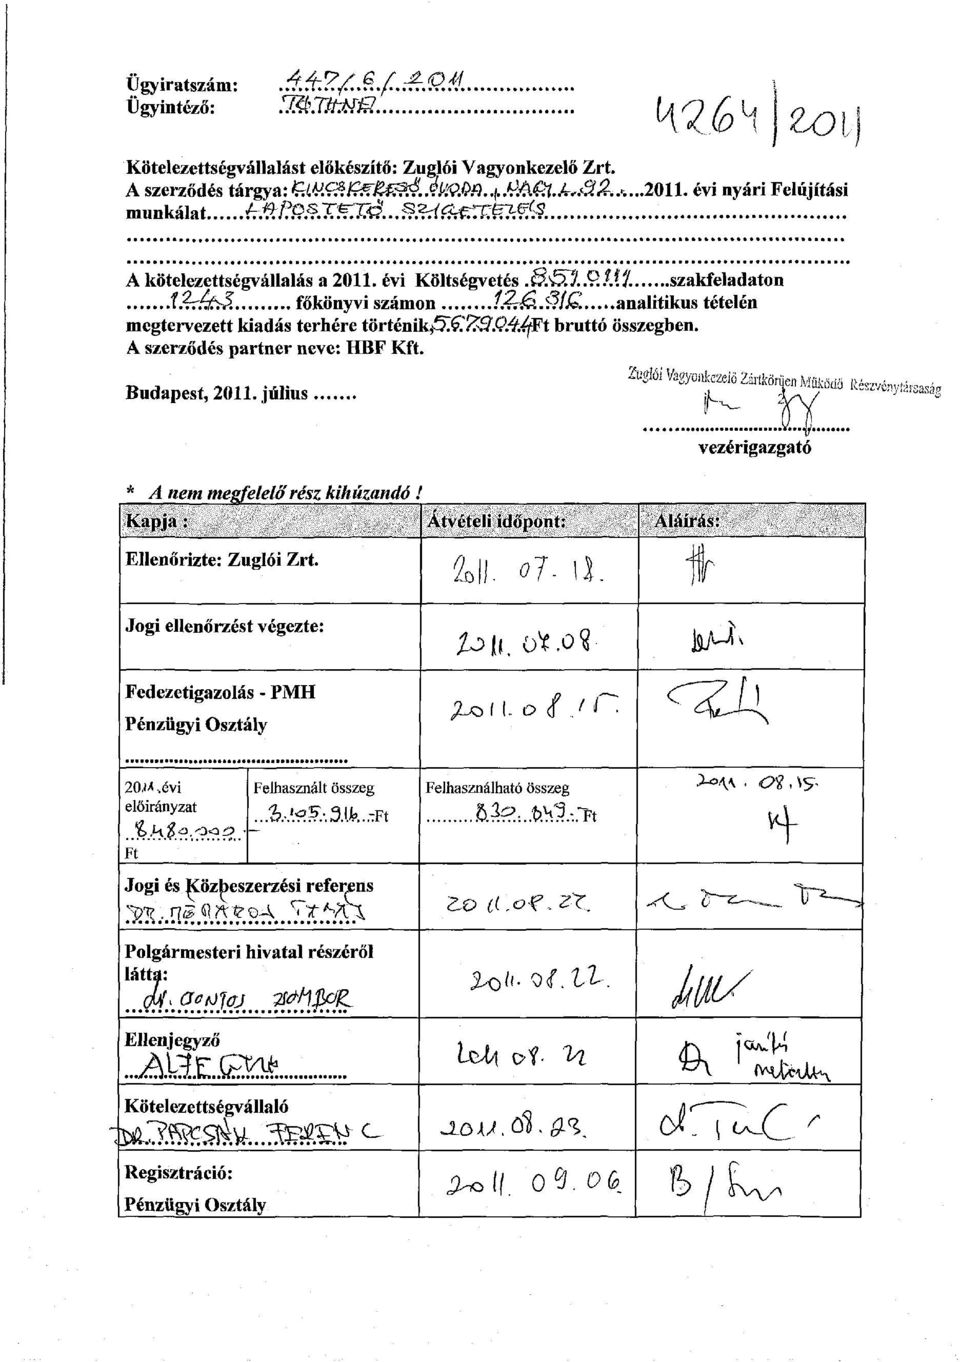 Ügyiratszám: 447/6/2011
Ügyintéző: TÓTHNÉ
4264/2011
Kötelezettségvállalást előkészítő: Zuglói Vagyonkezelő Zrt.
A szerződés tárgya: KINCSKERESŐ ÓVODA, NAGY L. 92. 2011. évi nyári Felújítási
munkálat LAPOSTETŐ SZIGETELÉS
A kötelezettségvállalás a 2011. évi Költségvetés 851.0111 szakfeladaton
1243 főkönyvi számon 126.316 analitikus tételén
megtervezett kiadás terhére történik, 5.679.044 Ft bruttó összegben.
A szerződés partner neve: HBF Kft.
Zuglói Vagyonkezelő Zártkörűen Működő Részvénytársaság
Budapest, 2011. július .......
vezérigazgató
* A nem megfelelő rész kihúzandó !
Kapja : Átvételi időpont: Aláírás:
Ellenőrizte: Zuglói Zrt. 2011. 07. 18.
Jogi ellenőrzést végezte: 2011. 07. 08
Fedezetigazolás - PMH
Pénzügyi Osztály 2011. 08. 15.
2011. évi Felhasznált összeg Felhasználható összeg 2011. 08. 15.
előirányzat 3.105.916.-Ft 830.049.-Ft
8.480.000.-
Ft
Jogi és Közbeszerzési referens
2011. 08. 22.
Polgármesteri hivatal részéről
látta: 2011. 08. 22.
dr. GONTOS ZSOMBOR
Ellenjegyző 2011 08. 22
Kötelezettségvállaló
DR. PAPCSÁK FERENC 2011. 08. 23.
Regisztráció: 2011. 09. 06.
Pénzügyi Osztály